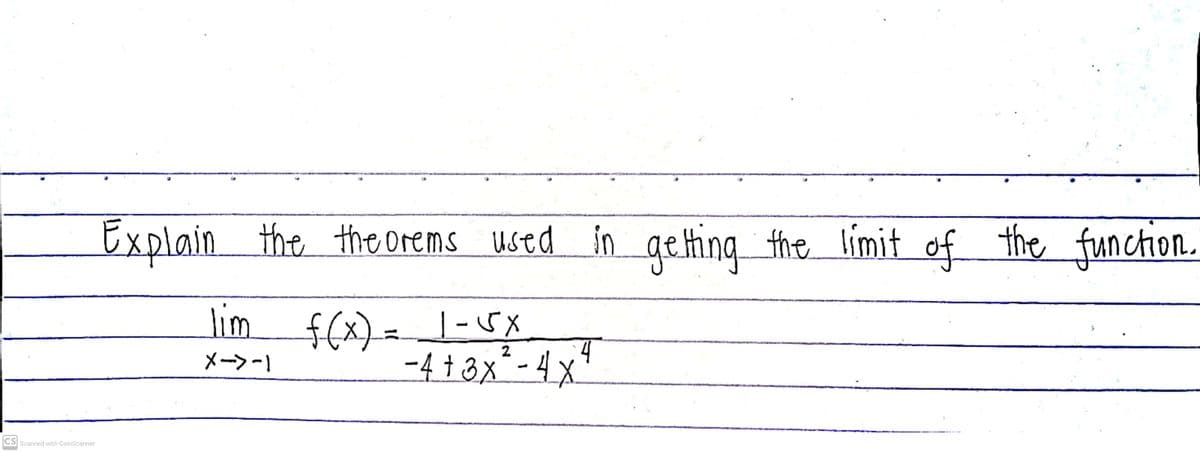 Explain the theorems used in getting the limit of the function.
lim f(x) = 1-5x
x->-1 -4+3x²-4x⁴
CS Scanned with CamScanner